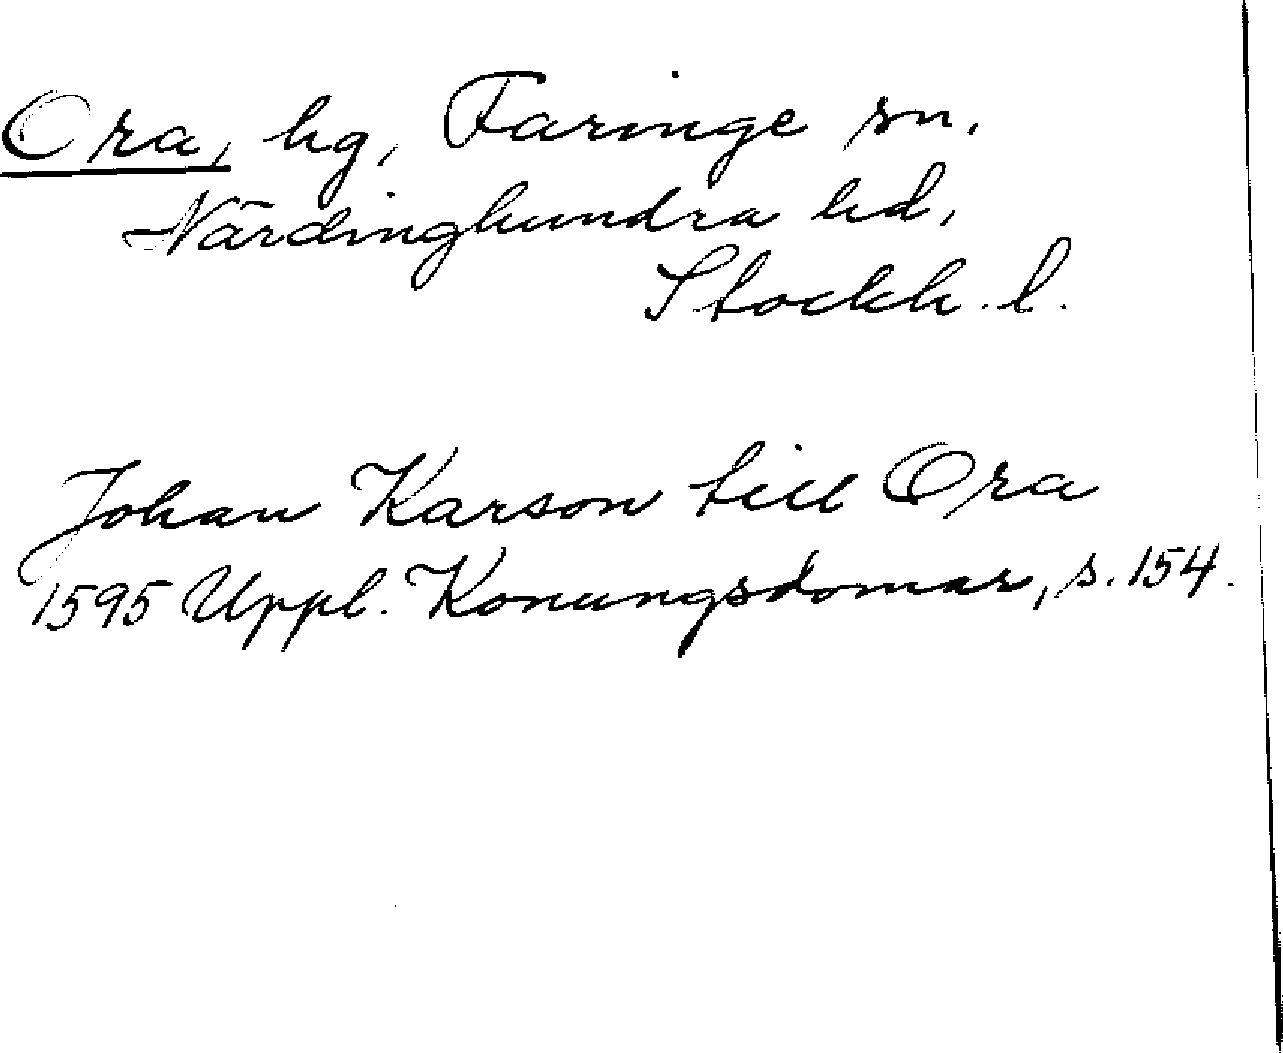 Ora, hg, Faringe sn.
Närdinghundra hd,
Stockh. l.
Johan Karson till Ora
1595 Uppl. Konungsdomar, s. 154.